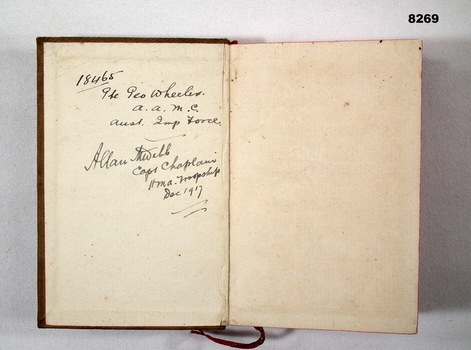 8269
18465
Pte Geo Wheeler.
A. A. M. C.
Aust. Imp Force.
Allan McWebb
Capt Chaplain
Troopship
Dec 1917